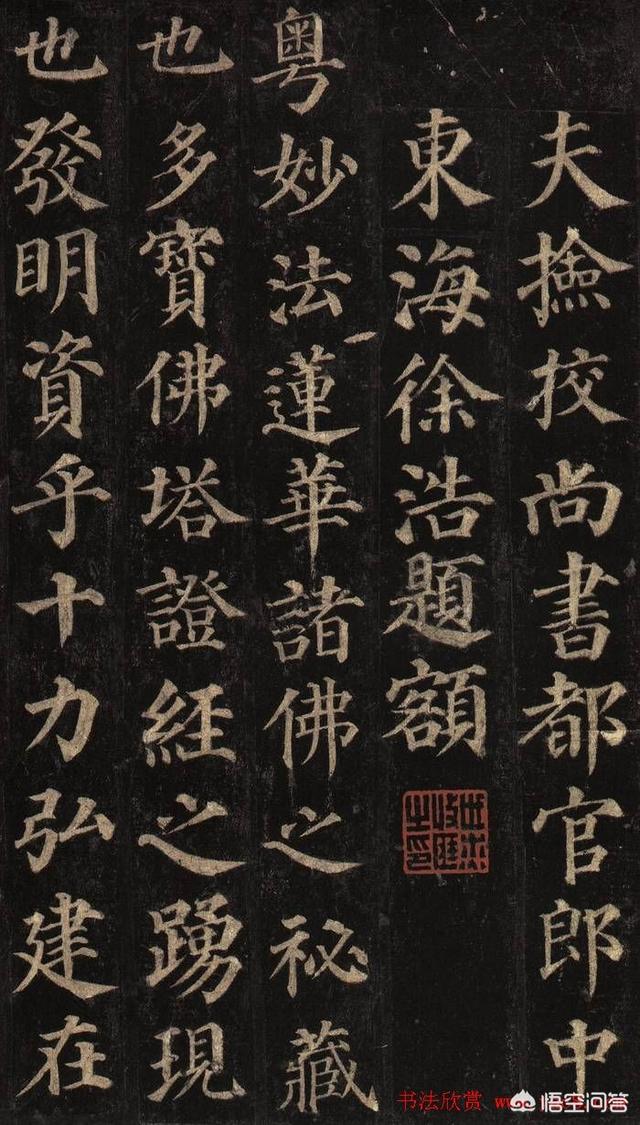 夫撿挍尚書都官郎中
東海徐浩題額
粵妙法蓮華諸佛之祕藏
也多寶佛塔證經之踴現
也發明資乎十力弘建在
书法欣赏 w
悟空问答